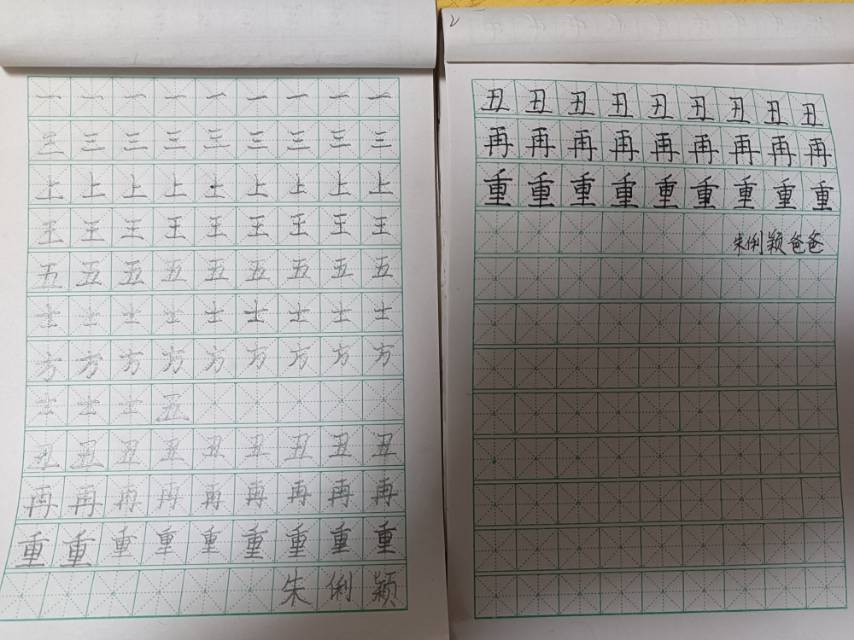 一一一一一一一一一
三三三三三三三三三
上上上上上上上上上
王王王王王王王王王
五五五五五五五五五
士士士士士士士士士
方方方方方方方方方
士士士五
丑丑丑丑丑丑丑丑丑
再再再再再再再再再
重重重重重重重重重
朱俐颖
2
丑丑丑丑丑丑丑丑丑
再再再再再再再再再
重重重重重重重重重
朱俐颖爸爸